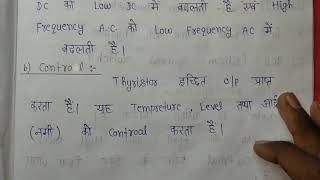 DC को Low DC में बदलती है एवं High
Frequency A.C. को Low Frequency AC में
बदलती है।
b) Controal :-
Thyristor इच्छित o/p प्राप्त
करता है। यह Tempreture, Level तथा आर्द्र
(नमी) को Controal करता है।